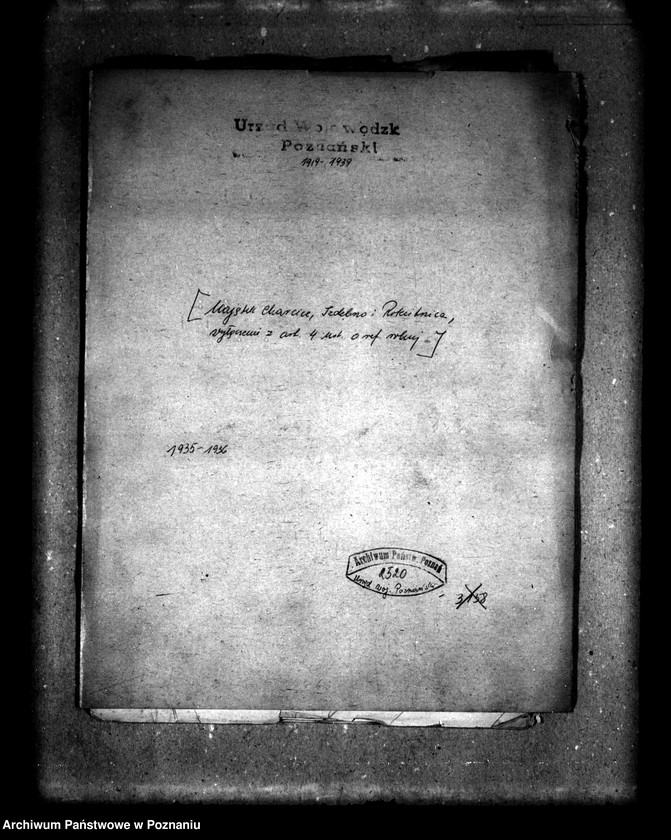 Urząd Wojewódzk
Poznański
1919-1939
[Majątek Charcice, i Rokietnica,
wyłączenie z art. 4 ust. o ref. rolnej -]
1935-1936
Archiwum Państw. Poznań
2520
Urząd Woj. Poznański
3/158
Archiwum Państwowe w Poznaniu